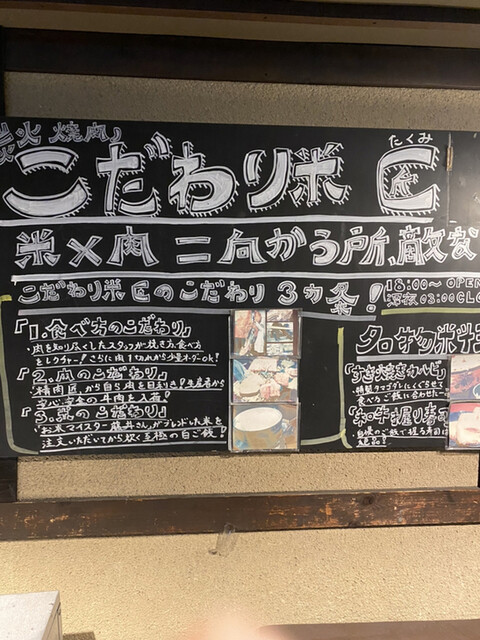 炭火 焼肉
たくみ
こだわり米 匠
米×肉 二向かう所、敵な
こだわり米 匠のこだわり 3カ条!
18:00〜 OPEN
深夜 03:00 CLO
「1.食べ方のこだわり」
・肉を知り尽くしたスタッフが焼き方、食べ方
をレクチャー!さらに肉1切れから少量オーダーok!
「2.肉のこだわり」
精肉匠が自ら肉を目利き!生産者から
安心安全の牛肉を入荷!
「3.米のこだわり」
「お米マイスター藤井さん」がブレンドした米を
注文いただいてから炊く至極の白ご飯!
名物
「すき焼きカルビ」
・特製タマゴダレにくぐらせて
食べる ご飯に合わせた
「和牛握り寿司
・自慢のご飯で握る寿司は
絶品!